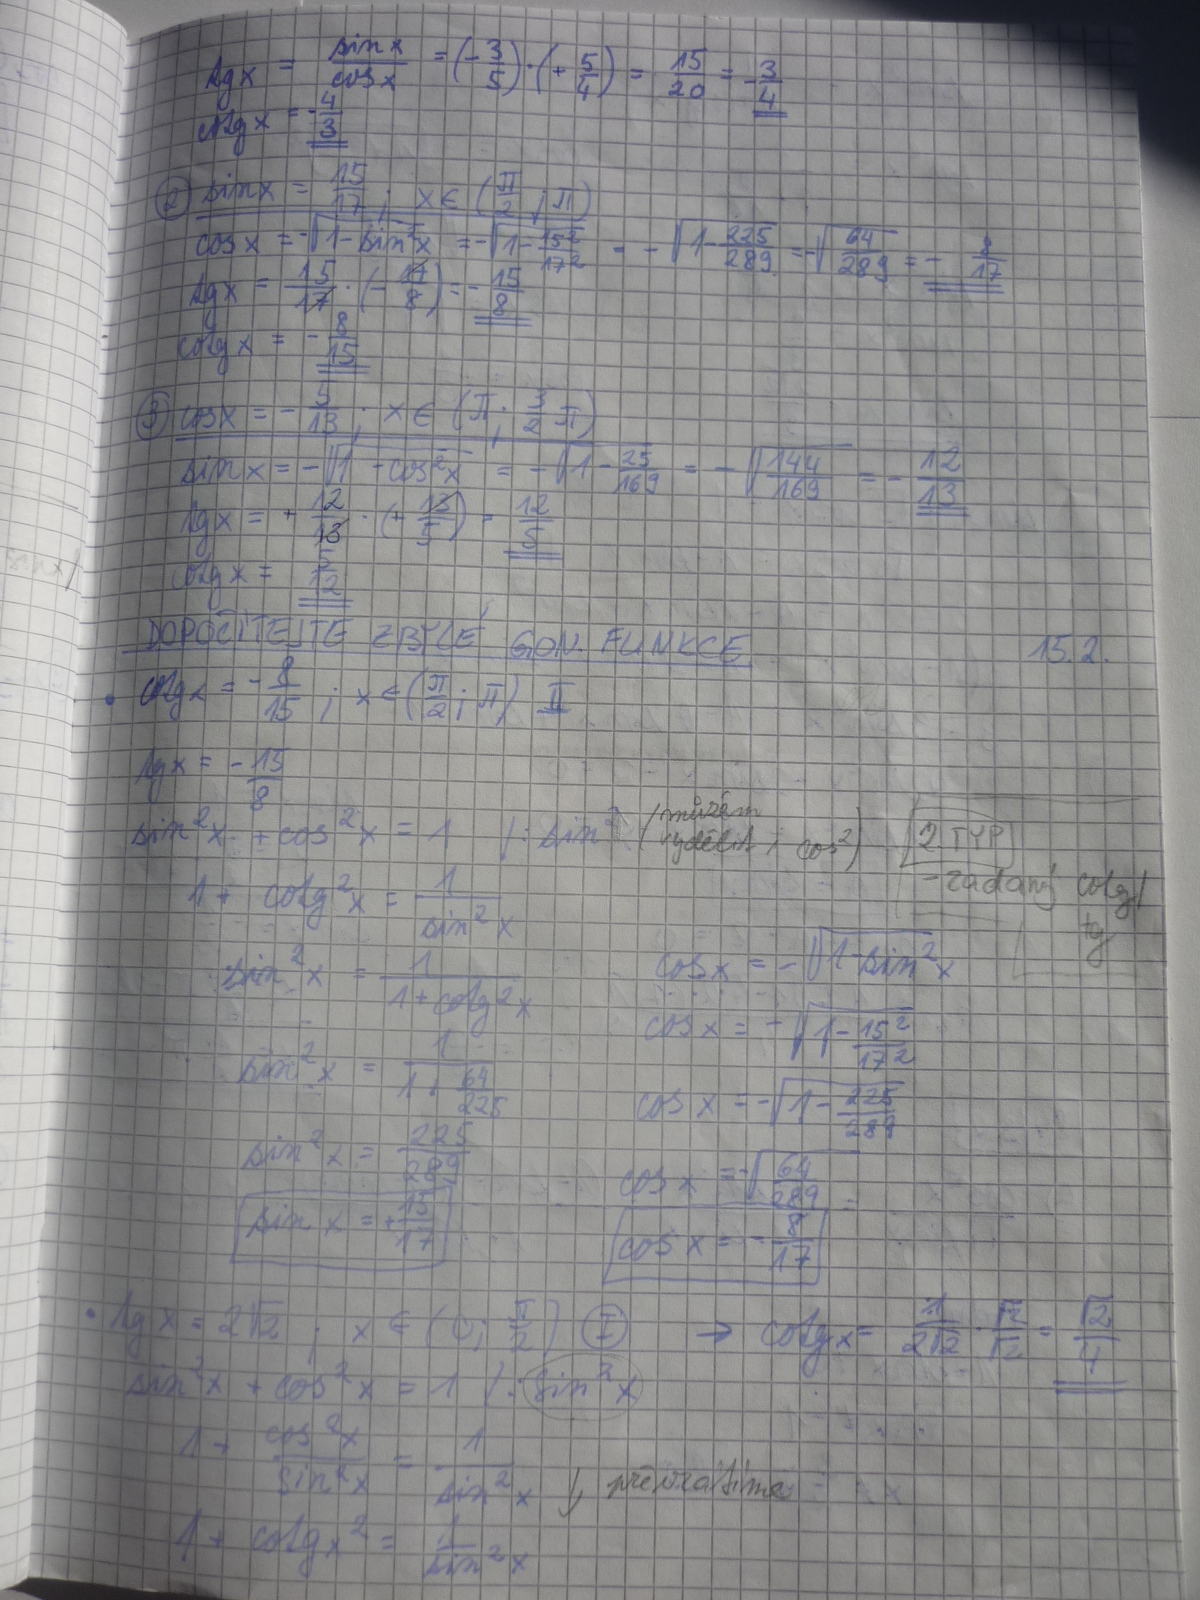 tgx = sinx/cosx = (-3/5)·(+5/4) = 15/20 = -3/4
cotgx = -4/3
② sinx = 15/17 ; x ∈ (π/2 ; π)
cosx = -√(1-sin²x) = -√(1-15²/17²) = -√(1-225/289) = -√(64/289) = -8/17
tgx = 15/17 · (-17/8) = -15/8
cotgx = -8/15
③ cosx = -5/13 ; x ∈ (π ; 3/2 π)
sinx = -√(1-cos²x) = -√(1-25/169) = -√(144/169) = -12/13
tgx = +12/13 · (+13/5) = 12/5
cotgx = 5/12
DOPOČÍTEJTE ZBYLÉ GON. FUNKCE 15.2.
• cotgx = -8/15 ; x ∈ (π/2 ; π) II
tgx = -15/8
sin²x + cos²x = 1 /: sin² (můžem vydělit i cos²) 2.TYP
1 + cotg²x = 1/sin²x - zadaný cotg/tg
sin²x = 1/(1+cotg²x) cosx = -√(1-sin²x)
sin²x = 1/(1+64/225) cosx = -√(1-15²/17²)
cosx = -√(1-225/289)
sin²x = 225/289 cosx = -√(64/289) =
sinx = +15/17 cosx = -8/17
• tgx = 2√2 ; x ∈ (0 ; π/2) I → cotgx = 1/2√2 · √2/√2 = √2/4
sin²x + cos²x = 1 /: sin²x
1 + cos²x/sin²x = 1/sin²x ↓ převrátíme
1 + cotgx² = 1/sin²x